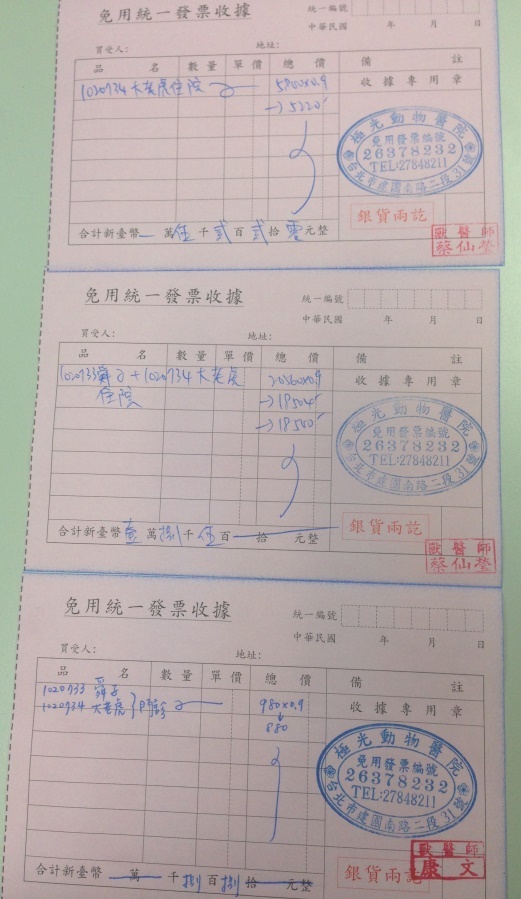 免用統一發票收據
統一編號
中華民國 年 月 日
買受人: 地址:
品 名 數量 單價 總價 備 註
1020734 大老虎住院 5800x0.9
→5220
收據專用章
極光動物醫院
免用發票編號
26378232
TEL:27848211
台北市建國南路二段31號
銀貨兩訖
獸醫師
蔡仙瑩
合計新臺幣 萬 伍 千 貳 百 貳 拾 零 元整
免用統一發票收據
統一編號
中華民國 年 月 日
買受人: 地址:
品 名 數量 單價 總價 備 註
1020733 舜子+1020734 大老虎
住院
20560x0.9
→18504
→18500
收據專用章
極光動物醫院
免用發票編號
26378232
TEL:27848211
台北市建國南路二段31號
銀貨兩訖
獸醫師
蔡仙瑩
合計新臺幣 壹 萬 捌 千 伍 百 拾 元整
免用統一發票收據
統一編號
中華民國 年 月 日
買受人: 地址:
品 名 數量 單價 總價 備 註
1020733 舜子
1020734 大老虎 } 門診
980x0.9
↓
880
收據專用章
極光動物醫院
免用發票編號
26378232
TEL:27848211
台北市建國南路二段31號
銀貨兩訖
獸醫師
康文
合計新臺幣 萬 千 捌 百 捌 拾 元整